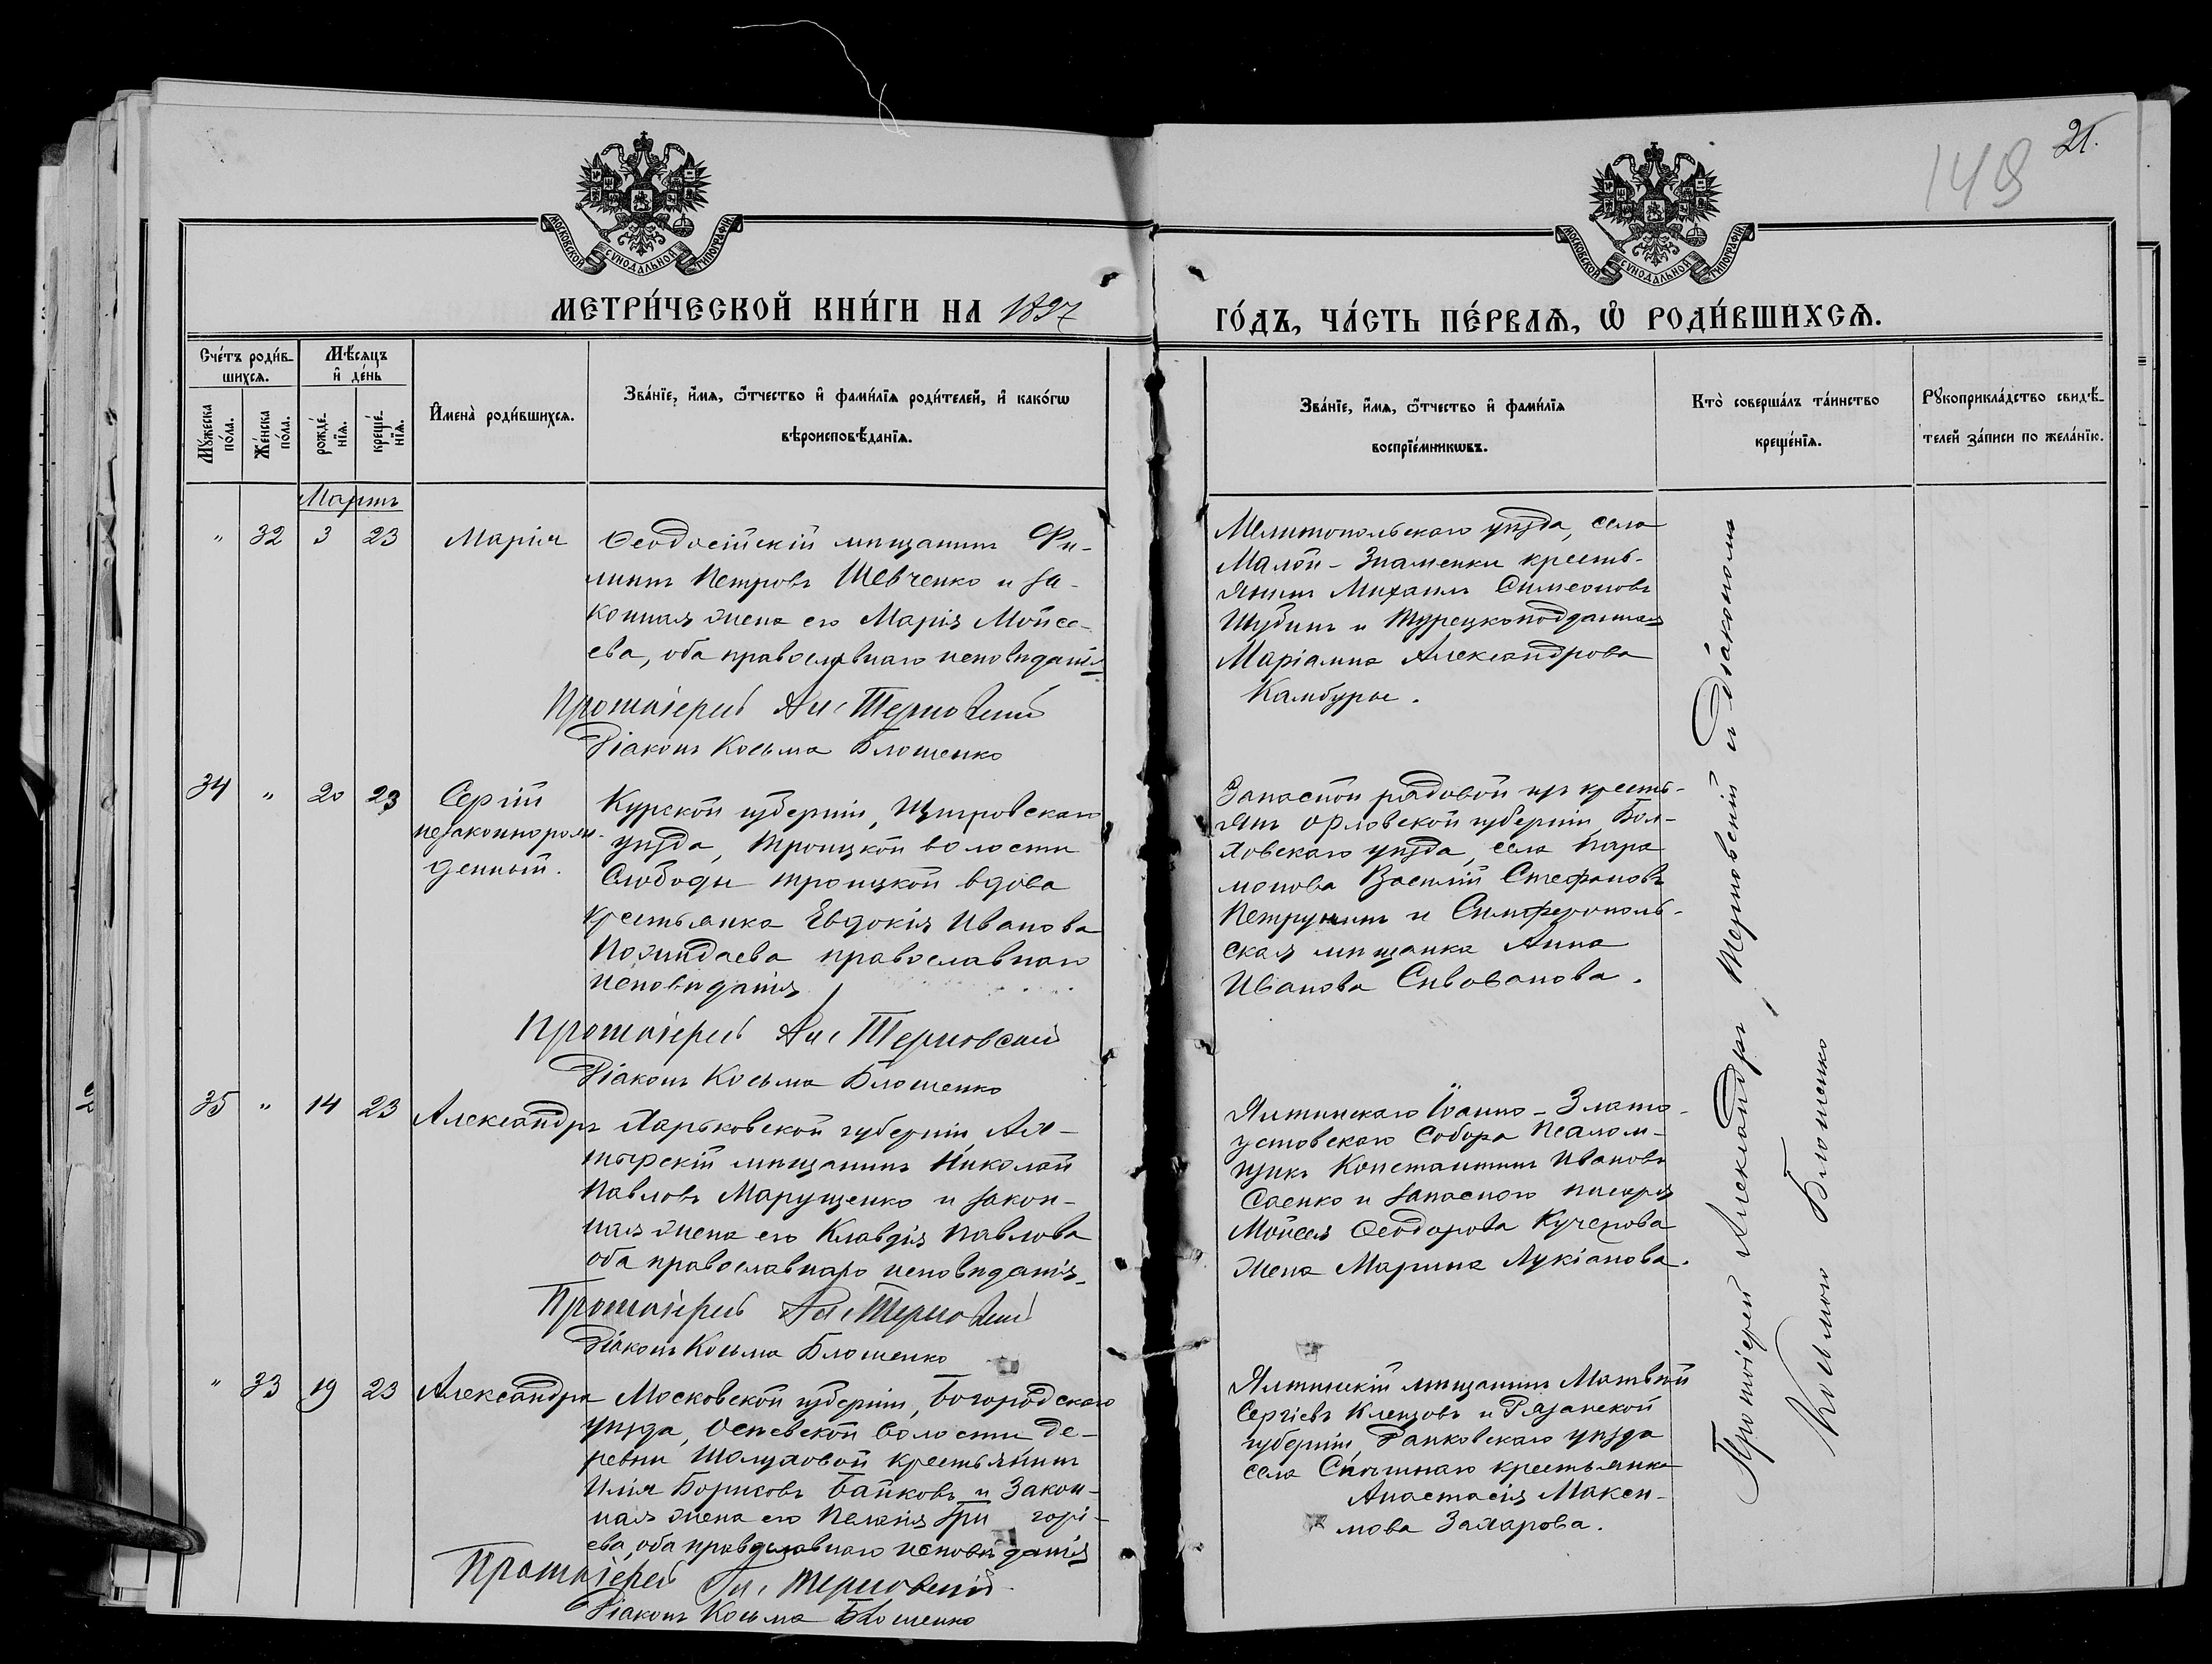 149
21.
МОСКОВСКОЙ СѴНОДАЛЬНОЙ ТИПОГРАФІИ
МОСКОВСКОЙ СѴНОДАЛЬНОЙ ТИПОГРАФІИ
МЕТРИ́ЧЕСКОЙ КНИ́ГИ НА 1897
ГО́ДЪ, ЧА́СТЬ ПЕ́РВАѦ, Ѽ РОДИ́ВШИХСѦ.
Сче́тъ роди́в-
шихсѧ.
Мꙋ́жеска
по́ла.
Же́нска
по́ла.
Мѣ́сѧцъ
и҆ де́нь
рожде́-
нїѧ.
креще́-
нїѧ.
И҆мена̀ роди́вшихсѧ.
Зва́нїе, и҆́мѧ, ѻ҆́тчество и҆ фами́лїѧ роди́телей, и҆ како́гѡ
вѣроисповѣ́данїѧ.
Зва́нїе, и҆́мѧ, ѻ҆́тчество и҆ фами́лїѧ
воспрїе́мникѡвъ.
Кто̀ соверша́лъ та́инство
креще́нїѧ.
Рꙋкоприкла́дство свидѣ́-
телей за́писи по жела́нїю.
Мартъ
" 32 3 23 Марія
Ѳеодосійскій мѣщанинъ Фи-
липпъ Петровъ Шевченко и за-
конная жена его Марія Мойсе-
ева, оба православнаго исповѣданія
Протоіерей Ал. Терновскій
Діаконъ Косьма Блошенко
Мелитопольскаго уѣзда, села
Малой-Знаменки кресть-
янинъ Михаилъ Симеоновъ
Шубинъ и Турецкоподданная
Маріанна Александрова
Камбуры.
34 " 20 23 Сергій
незаконнорож-
денный.
Курской губерніи, Щигровскаго
уѣзда, Троицкой волости
Слободы Троицкой вдова
крестьянка Евдокія Иванова
православнаго
исповѣданія
Протоіерей Ал. Терновскій
Діаконъ Косьма Блошенко
Запасной рядовой изъ кресть-
янъ Орловской губерніи, Бол-
ховскаго уѣзда, села Пара
монова Василій Стефановъ
Петрунинъ и Симферополь-
ская мѣщанка Анна
Иванова
35 " 14 23 Александръ
Харьковской губерніи, Ах-
тырскій мѣщанинъ Николай
Павловъ Марущенко и закон-
ная жена его Клавдія Павлова
оба православнаго исповѣданія
Протоіерей Ал. Терновскій
Діаконъ Косьма Блошенко
Ялтинскаго Іоанно-Злато-
устовскаго Собора Псалом-
щикъ Константинъ Ивановъ
Саенко и запаснаго писаря
Мойсея Ѳеодорова Кучерова
жена Марина Лукіанова.
" 33 19 23 Александра
Московской губерніи, Богородскаго
уѣзда, Осѣевской волости де-
ревни Шолуховой крестьянинъ
Илія Борисовъ Байковъ и закон-
ная жена его Пелагія Гри горі-
ева, оба православнаго исповѣданія
Протоіерей Ал. Терновскій
Діаконъ Косьма Блошенко
Ялтинскій мѣщанинъ Матвѣй
Сергіевъ Кленовъ и Рязанской
губерніи, Ранковскаго уѣзда
села крестьянка
Анастасія Макси-
мова Захарова.
Протоіерей Александръ Терновскій съ діакономъ
Косьмою Блошенко